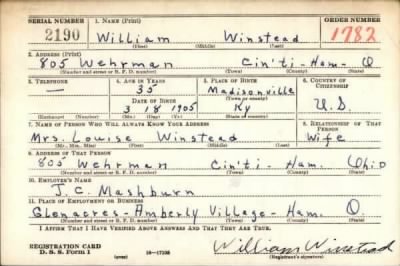 SERIAL NUMBER 1. NAME (Print) ORDER NUMBER
2190 William Winstead 1782
(First) (Middle) (Last)
2. ADDRESS (Print)
805 Wehrman Cin'ti - Ham - O
(Number and street or R. F. D. number) (Town) (County) (State)
3. TELEPHONE 4. AGE IN YEARS 5. PLACE OF BIRTH 6. COUNTRY OF CITIZENSHIP
— 35 Madisonville
DATE OF BIRTH (Town or county)
3 18 1905 Ky U.S.
(Exchange) (Number) (Mo.) (Day) (Yr.) (State or country)
7. NAME OF PERSON WHO WILL ALWAYS KNOW YOUR ADDRESS 8. RELATIONSHIP OF THAT PERSON
Mrs. Louise Winstead Wife
(Mr., Mrs., Miss) (First) (Middle) (Last)
9. ADDRESS OF THAT PERSON
805 Wehrman Cin'ti. Ham. Ohio
(Number and street or R. F. D. number) (Town) (County) (State)
10. EMPLOYER'S NAME
J. C. Mashburn
11. PLACE OF EMPLOYMENT OR BUSINESS
Glenacres - Amberly Village - Ham. O
(Number and street or R. F. D. number) (Town) (County) (State)
I AFFIRM THAT I HAVE VERIFIED ABOVE ANSWERS AND THAT THEY ARE TRUE.
REGISTRATION CARD
D. S. S. Form 1 (over) 16—17105 William Winstead
(Registrant's signature)